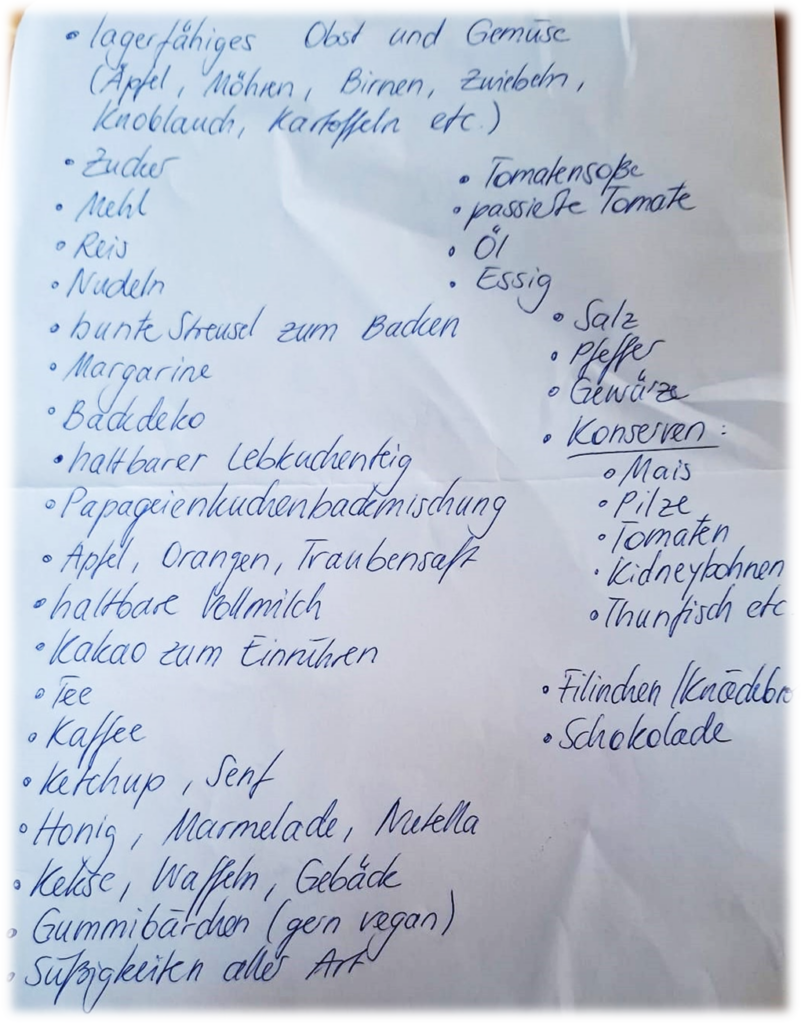 • lagerfähiges Obst und Gemüse
(Äpfel, Möhren, Birnen, Zwiebeln,
Knoblauch, Kartoffeln etc.)
• Zucker
• Mehl
• Reis
• Nudeln
• bunte Streusel zum Backen
• Margarine
• Backdeko
• haltbarer Lebkuchenteig
• Papageienkuchenbackmischung
• Apfel, Orangen, Traubensaft
• haltbare Vollmilch
• Kakao zum Einrühren
• Tee
• Kaffee
• Ketchup, Senf
• Honig, Marmelade, Nutella
• Kekse, Waffeln, Gebäck
• Gummibärchen (gern vegan)
• Süßigkeiten aller Art
• Tomatensoße
• passierte Tomate
• Öl
• Essig
• Salz
• Pfeffer
• Gewürze
• Konserven:
• Mais
• Pilze
• Tomaten
• Kidneybohnen
• Thunfisch etc
• Filinchen/Knäckebro
• Schokolade